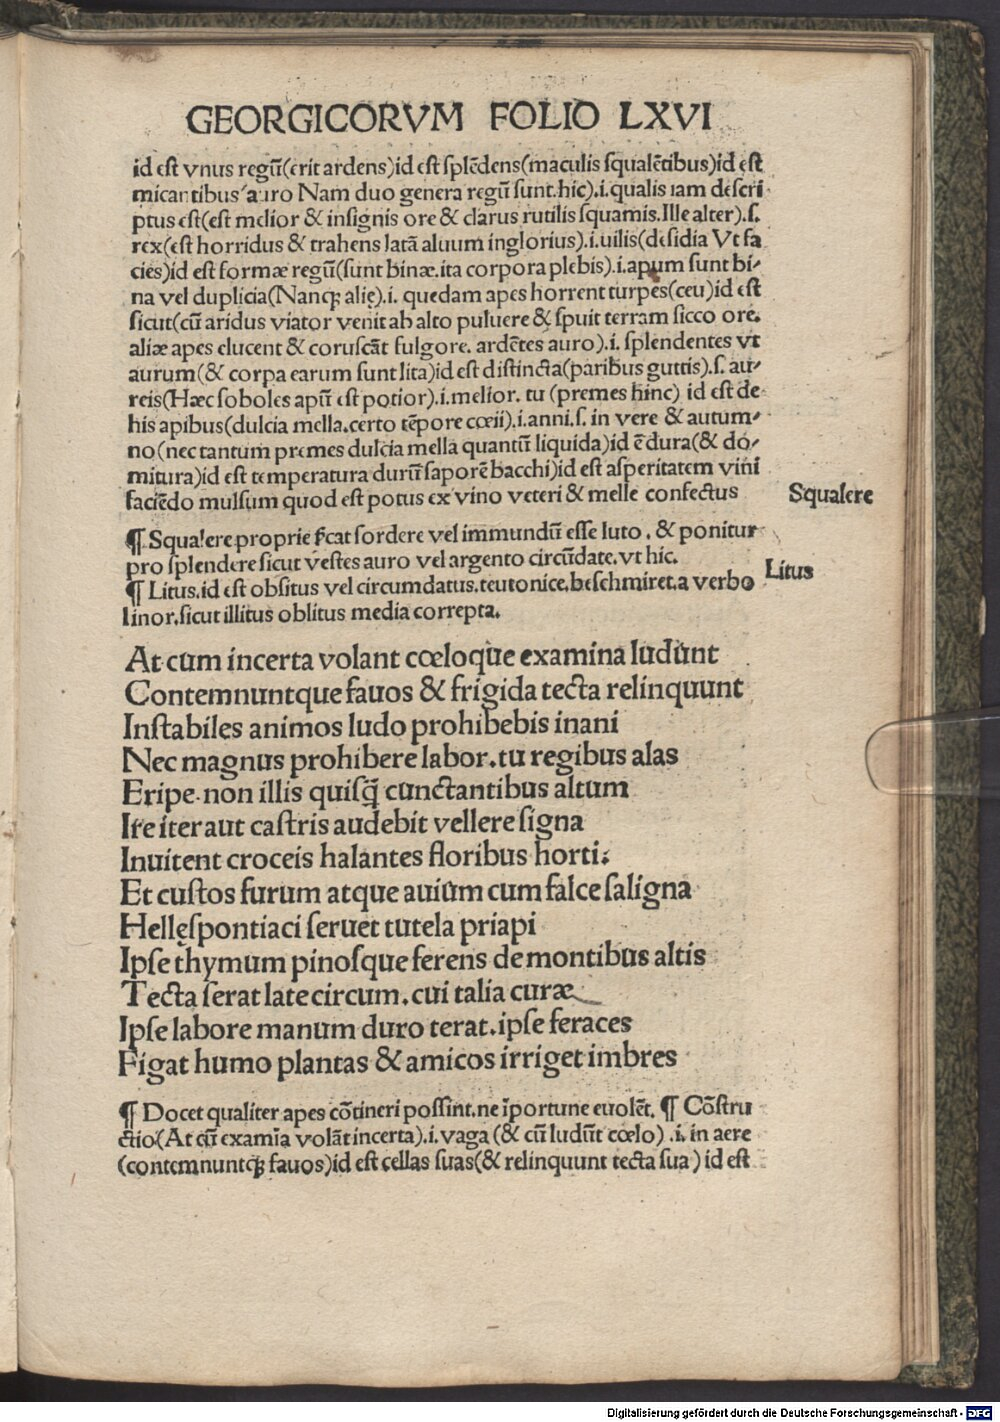 GEORGICORVM FOLIO LXVI
id eſt vnus regū(erit ardens)id eſt ſplēdens(maculis ſqualētibus)id eſt
micantibus auro Nam duo genera regū ſunt.hic).i.qualis iam deſcri
ptus eſt(eſt melior & inſignis ore & clarus rutilis ſquamis.Ille alter).ſ.
rex(eſt horridus & trahens latā aluum inglorius).i.uilis(deſidia Vt fa
cies)id eſt formæ regū(ſunt binæ.ita corpora plebis).i.apum ſunt bi⸗
na vel duplicia(Nanqꝫ alię).i. quedam apes horrent turpes(ceu)id eſt
ſicut(cū aridus viator venit ab alto puluere & ſpuit terram ſicco ore.
aliæ apes elucent & coruſcāt fulgore. ardētes auro).i. ſplendentes vt
aurum(& corpa earum ſunt lita)id eſt diſtincta(paribus guttis).ſ. au⸗
reis(Hæc ſoboles apū eſt potior).i.melior. tu (premes hinc) id eſt de
his apibus(dulcia mella.certo tēpore cœii).i.anni.ſ. in vere & autum⸗
no(nec tantum premes dulcia mella quantū liquida)id ē dura(& do⸗
mitura)id eſt temperatura durū ſaporē bacchi)id eſt aſperitatem vini
faciēdo mulſum quod eſt potus ex vino veteri & melle confectus
Squalere
¶ Squalere proprie ſ̄cat ſordere vel immundū eſſe luto . & ponitur
pro ſplendere ſicut veſtes auro vel argento circūdate. vt hic.
Litus
¶ Litus.id eſt obſitus vel circumdatus.teutonice.beſchmiret.a verbo
linor.ſicut illitus oblitus media correpta.
At cum incerta volant cœloque examina ludunt
Contemnuntque fauos & frigida tecta relinquunt
Inſtabiles animos ludo prohibebis inani
Nec magnus prohibere labor.tu regibus alas
Eripe. non illis quiſq̄ cunctantibus altum
Ire iter aut caſtris audebit vellere ſigna
Inuitent croceis halantes floribus horti:
Et cuſtos furum atque auium cum falce ſaligna
Helleſpontiaci ſeruet tutela priapi
Ipſe thymum pinoſque ferens de montibus altis
Tecta ſerat late circum.cui talia curæ
Ipſe labore manum duro terat.ipſe feraces
Figat humo plantas & amicos irriget imbres
¶ Docet qualiter apes cōtineri poſſint.ne īportune euolēt. ¶ Cōſtru
ctio(At cū examīa volāt incerta).i.vaga (& cū ludūt cœlo) .i. in aere
(contemnuntqꝫ fauos)id eſt cellas ſuas(& relinquunt tecta ſua) id eſt
Digitalisierung gefördert durch die Deutsche Forschungsgemeinschaft - DFG